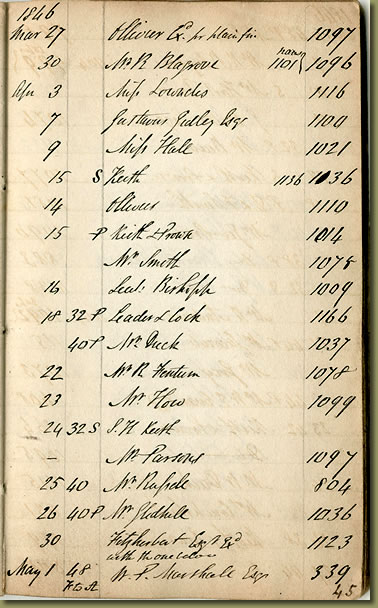 1846
Mar 27 Ollivier Exd pr plain fin 1097
30 Mr R Blagrove now 1101 1096
Apr 3 Miss Lowndes 1116
7 Justinus Gulley Esqr 1100
9 Miss Hall 1021
15 S Keith 1136 1036
14 Ollivier 1110
15 P Keith & Prowse 1014
Mr Smith 1078
16 Lieut 1009
18 32 P Leader & Cock 1166
40 P Mr Duck 1037
22 Mr R Fentum 1078
23 Mr How 1099
24 32 S S. H Keith
- Mr Parsons 1097
25 40 Mr Russell 804
26 40 P Mr Gledhill 1036
30 Fitzherbert Esqr Exd 1123
with the one below
May 1 48 W. P. Marshall Esqr 339
F to A 45